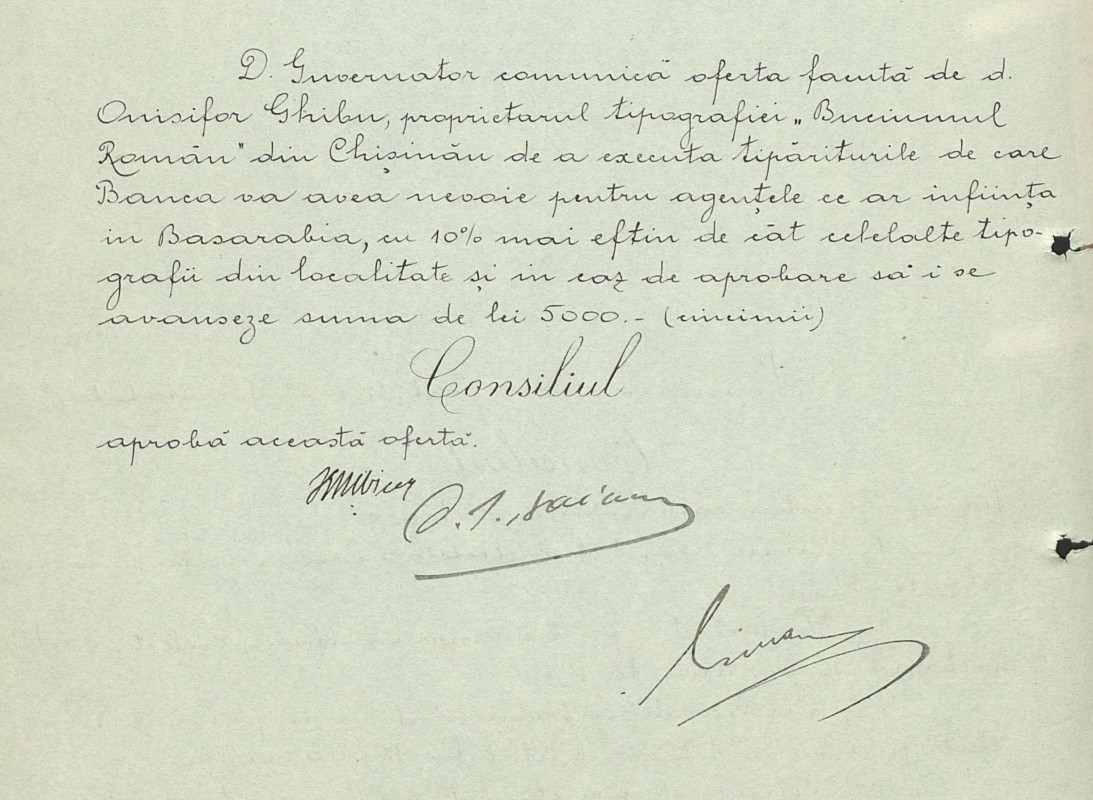 D. Guvernator comunică oferta facută de d.
Onisifor Ghibu, proprietarul tipografiei „Buciumul
Român" din Chișinău de a executa tipăriturile de care
Banca va avea nevoie pentru agențele ce ar inființa
in Basarabia, cu 10% mai eftin de cât celelalte tipo-
grafii din localitate și in caz de aprobare să i se
avanseze suma de lei 5000.- (cincimii)
Consiliul
aprobă această ofertă.